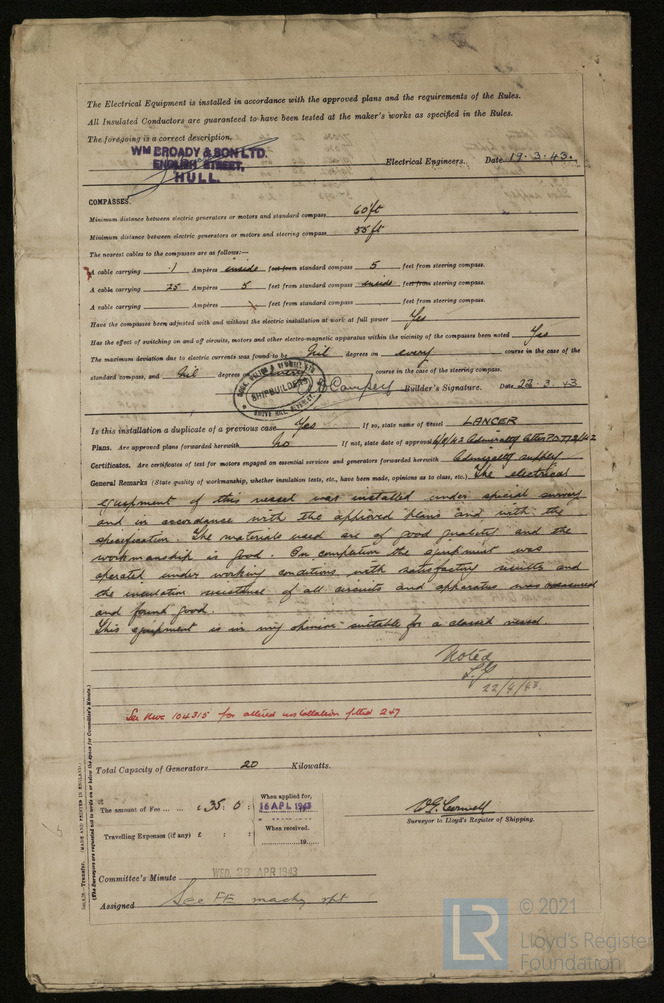 The Electrical Equipment is installed in accordance with the approved plans and the requirements of the Rules.
All Insulated Conductors are guaranteed to have been tested at the maker's works as specified in the Rules.
The foregoing is a correct description.
WM BROADY & SON LTD.
ENGLISH STREET,
HULL.
Electrical Engineers. Date 19.3.43.
COMPASSES.
Minimum distance between electric generators or motors and standard compass 60 ft
Minimum distance between electric generators or motors and steering compass 55 ft
The nearest cables to the compasses are as follows:—
A cable carrying .1 Ampères inside feet from standard compass 5 feet from steering compass.
A cable carrying 25 Ampères 5 feet from standard compass inside feet from steering compass.
A cable carrying Ampères feet from standard compass feet from steering compass.
Have the compasses been adjusted with and without the electric installation at work at full power Yes
Has the effect of switching on and off circuits, motors and other electro-magnetic apparatus within the vicinity of the compasses been noted Yes
The maximum deviation due to electric currents was found to be Nil degrees on every course in the case of the
standard compass, and Nil degrees on every course in the case of the steering compass.
SHIPBUILDERS
GROVE HILL, BEVERLEY.
Builder's Signature. Date 22.3.43
Is this installation a duplicate of a previous case Yes If so, state name of vessel LANCER
Plans. Are approved plans forwarded herewith No If not, state date of approval Admiralty letter
Certificates. Are certificates of test for motors engaged on essential services and generators forwarded herewith Admiralty supply
General Remarks (State quality of workmanship, whether insulation tests, etc., have been made, opinions as to class, etc.) The electrical
equipment of this vessel was installed under special survey
and in accordance with the approved plans and with the
specification. The materials used are of good quality and the
workmanship is good. On completion the equipment was
operated under working conditions with satisfactory results and
the insulation resistance of all circuits and apparatus was measured
and found good.
This equipment is in my opinion suitable for a classed vessel.
Noted
22/4/43
See Nwc 104315 for altered installation fitted 2.47
Total Capacity of Generators 20 Kilowatts.
The amount of Fee ... ... £ 35 : 0 :
When applied for,
16 APL 1943
Travelling Expenses (if any) £ : :
When received.
19
Surveyor to Lloyd's Register of Shipping.
Committee's Minute WED. 28 APR 1943
Assigned See FE machy rpt
Transfer. (MADE AND PRINTED IN ENGLAND.)
(The Surveyors are requested not to write on or below the space for Committee's Minute.)
LR
© 2021
Lloyd's Register
Foundation